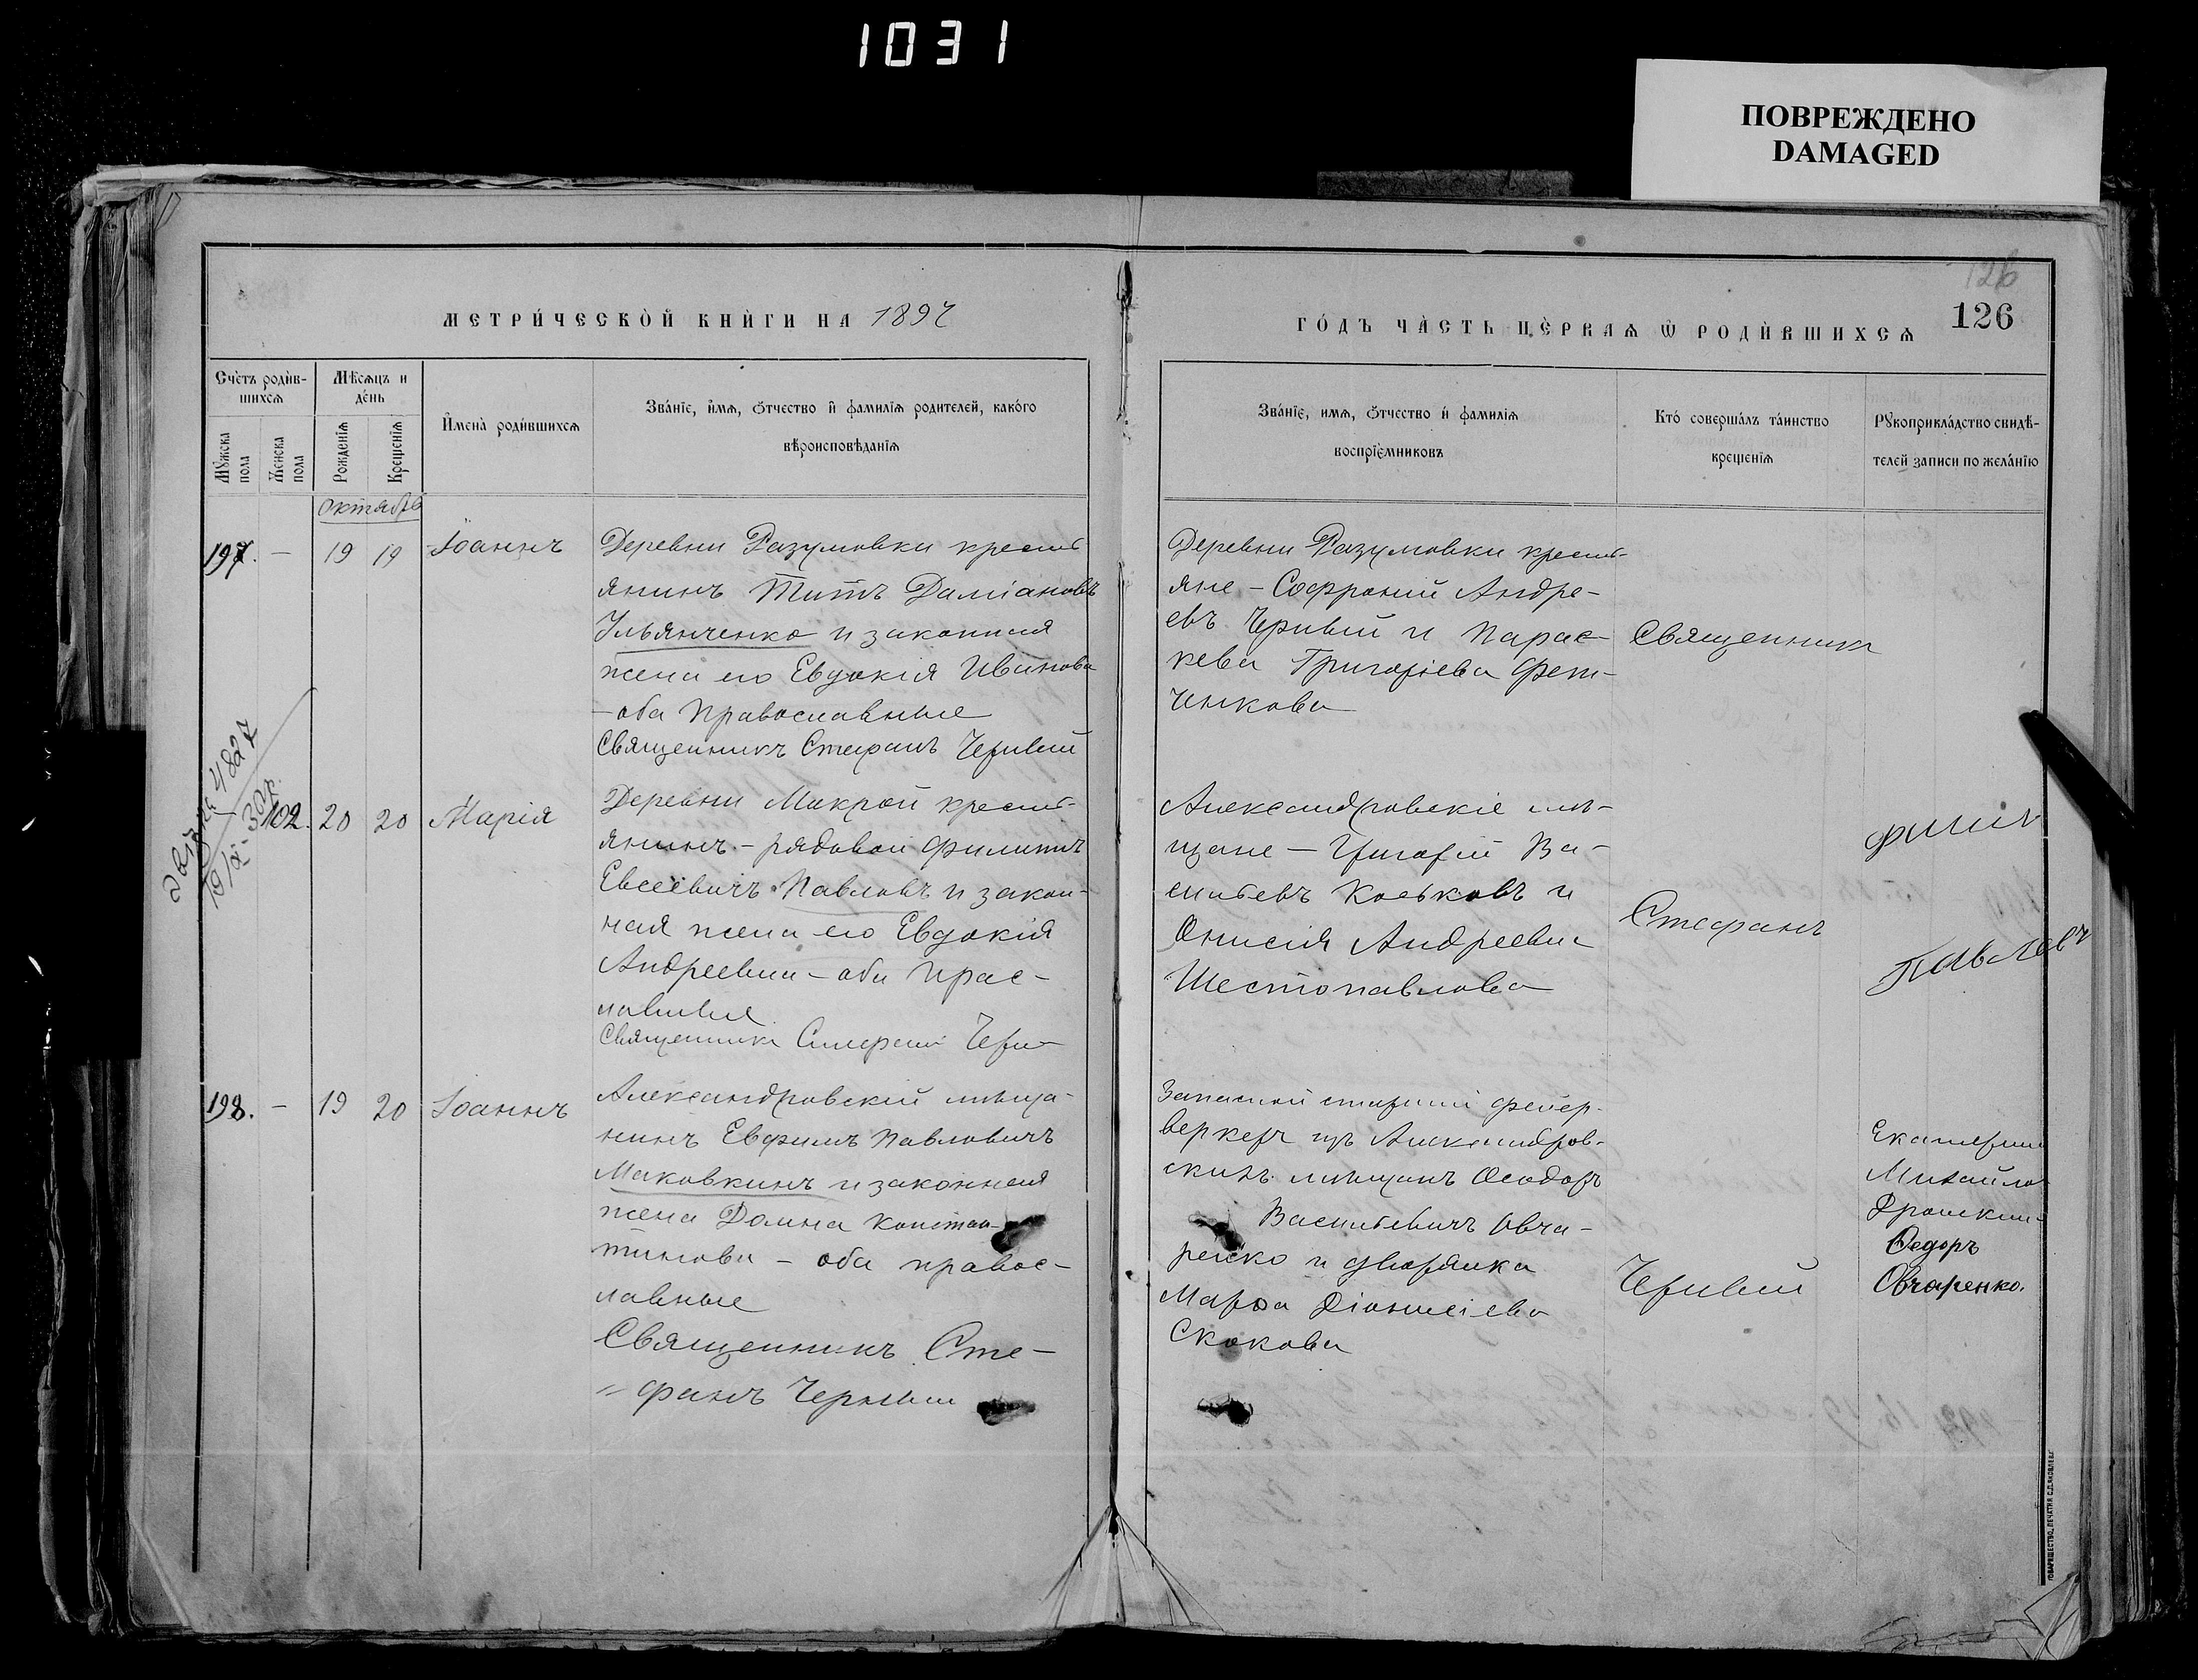 1031
ПОВРЕЖДЕНО
DAMAGED
126
126
МЕТРИ́ЧЕСКО̀Й КНЍГИ НА 1897
ГО́ДЪ ЧА̀СТЬ ПЀРВАѦ Ѿ РОДЍВШИХСѦ
Сче́тъ роди̂в-
шихсѧ
Мѣ́сѧцъ и
де́нь
Мꙋ́жеска
пола
Же́нска
пола
Рожденїѧ
Крещенїѧ
И҆мена̀ роди́вшихсѧ
Зва́нїе, и҆́мѧ, ѻ҆́тчество и҆ фамилїѧ родителей, како́го
вѣроисповѣданїѧ
Зва́нїе, имѧ, ѻ҆́тчество и҆ фамилїѧ
воспрїе́мниковъ
Кто́ соверша́лъ та́инство
крещенїѧ
Рꙋкоприкла́дство свидѣ́-
телей записи по жела́нїю
Октябрь
197. — 19 19 Іоаннъ
Деревни Разумовки кресть
янинъ Титъ Даміановъ
Ульянченко и законная
жена его Евдокія Иванова
— оба православные
Священникъ Стефанъ Черный
Деревни Разумовки кресть-
яне — Софроній Андре-
евъ Черный и Парас-
кева Григоріева
Священникъ
4827
102. 20 20 Марія
Деревни Мокрой кресть-
янинъ — рядовой Филиппъ
Евсеевичъ Павловъ и закон-
ная жена его Евдокія
Андреевна — оба прас-
лавные
Священникъ Стефанъ Черн
Александровскіе мѣ-
щане — Григорій Ва-
сильевъ Коськовъ и
Онисія Андреевна
Шестопавлова
Стефанъ
Филип
Павловъ
198. — 19 20 Іоаннъ
Александровскій мѣща-
нинъ Евфимъ Павловичъ
Маковкинъ и законная
жена Домна Констан-
тинова — оба правос-
лавные
Священникъ Сте-
= фанъ Черный
Запасной старшій фейер-
веркеръ изъ Александров-
скихъ мѣщанъ Ѳеодоръ
Васильевичъ Овча-
ренко и дворянка
Марѳа Діонисіева
Скокова
Черный
Екатерина
Михайло
Ѳедоръ
Овчаренко.